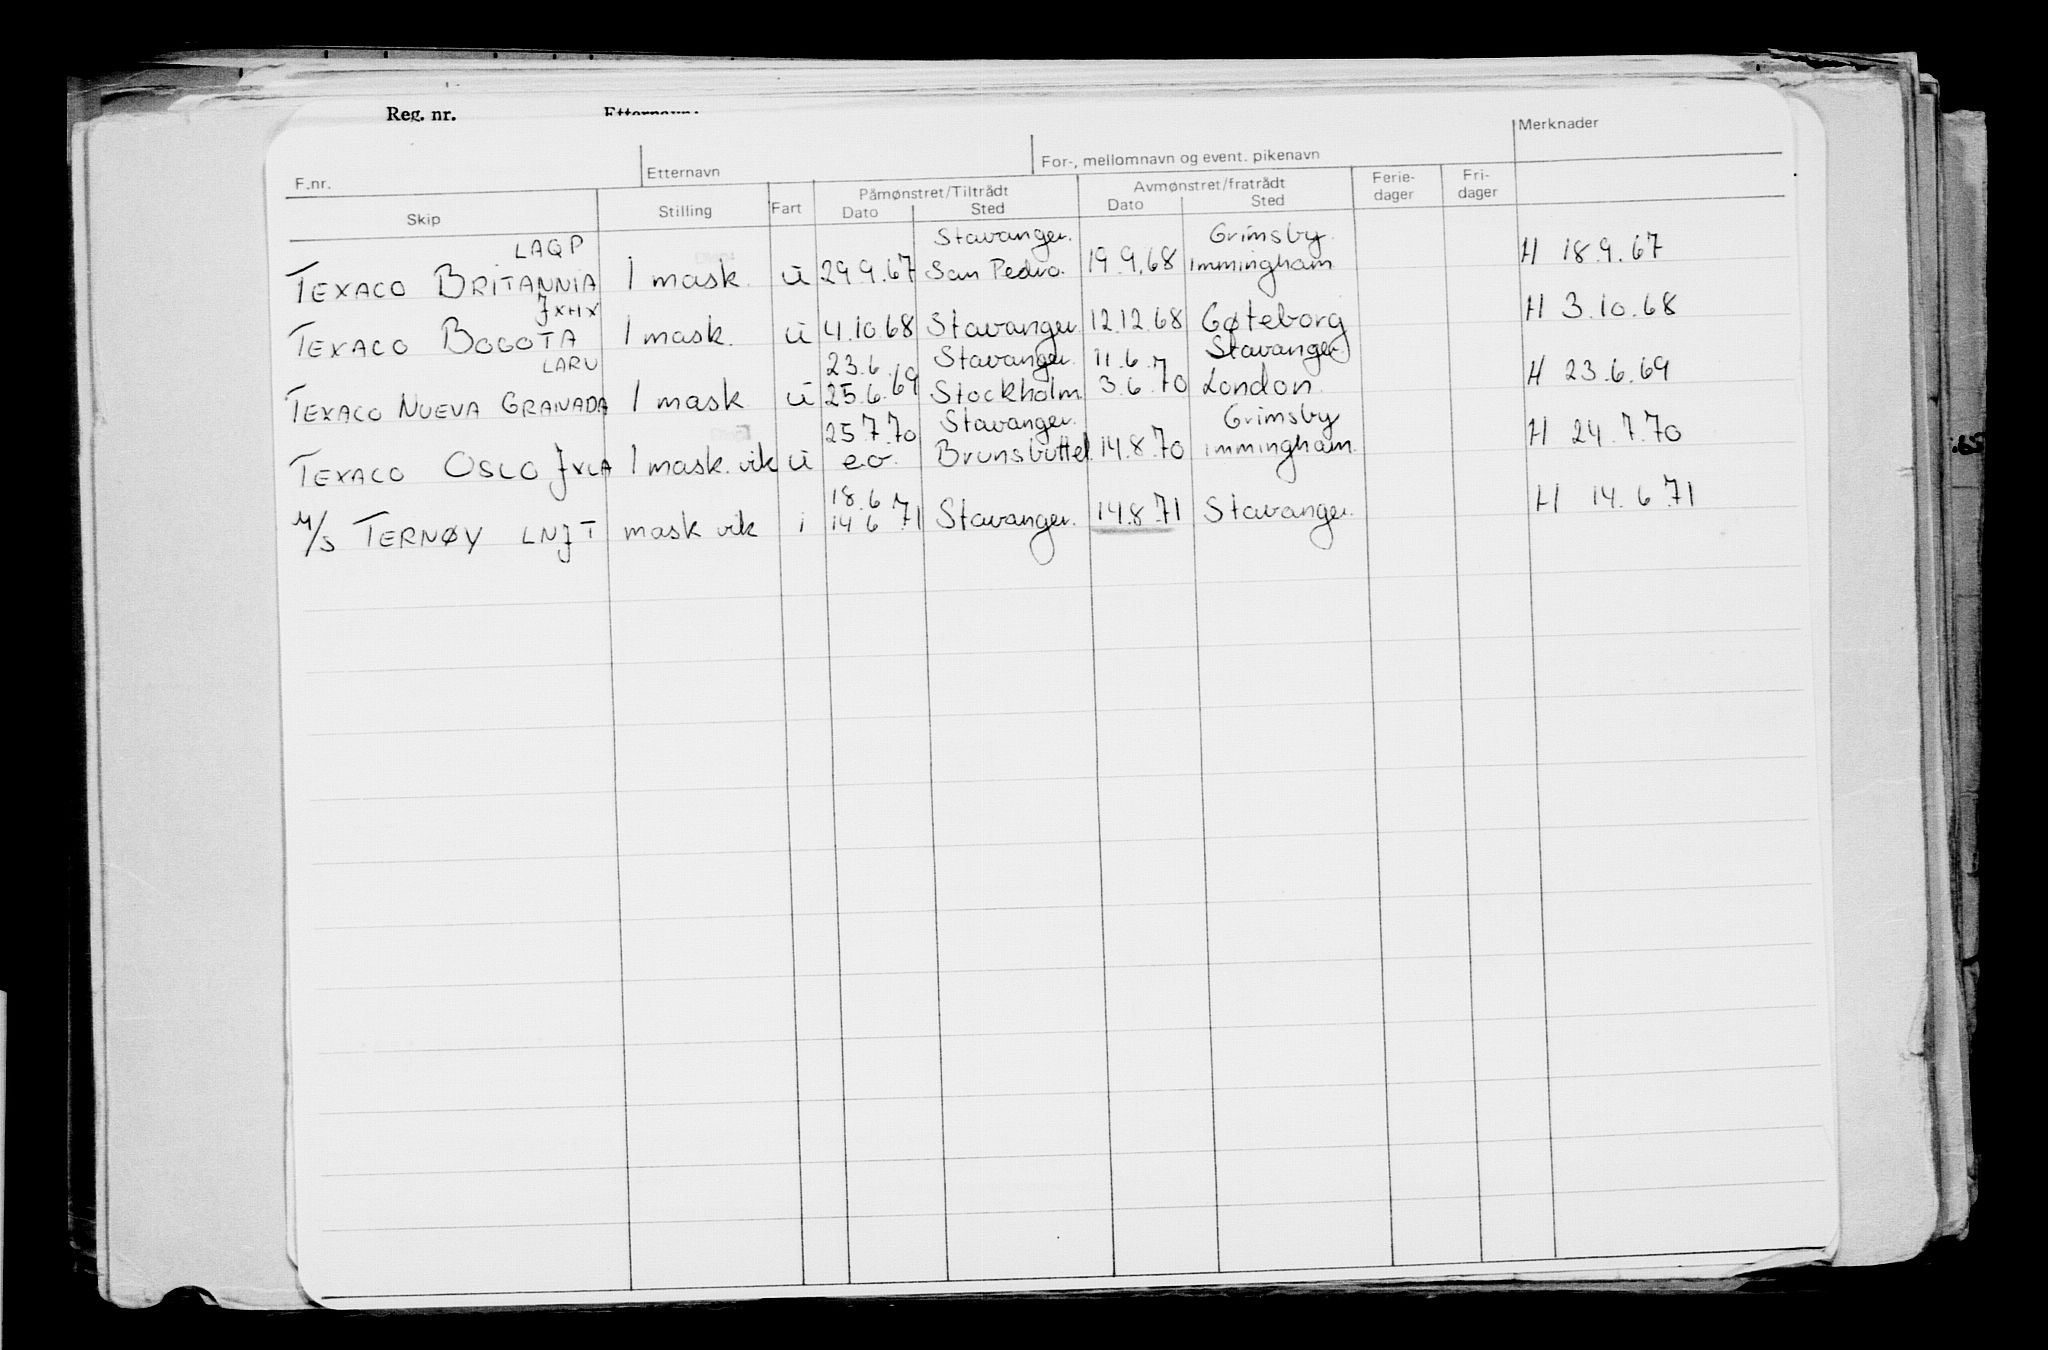 Reg. nr. Etternavn:
F.nr. Etternavn For-, mellomnavn og event. pikenavn Merknader
Skip Stilling Fart Påmønstret/Tiltrådt Dato Sted Avmønstret/fratrådt Dato Sted Ferie-dager Fri-dager
LAQP Stavanger. Grimsby
TEXACO BRITANNIA 1 mask. u 29.9.67 San Pedro. 19.9.68 Immingham H 18.9.67
JXHX
TEXACO BOGOTA 1 mask. u 4.10.68 Stavanger. 12.12.68 Gøteborg H 3.10.68
LARU 23.6. Stavanger. 11.6.70 Stavanger.
TEXACO NUEVA GRANADA 1 mask u 25.6.69 Stockholm 3.6.70 London. H 23.6.69
25.7.70 Stavanger. Grimsby
TEXACO OSLO JXLA 1 mask. vik u e.o. Brunsbüttel. 14.8.70 immingham. H 24.7.70
18.6
M/S TERNØY LNJT mask vik i 14 6 71 Stavanger. 14.8.71 Stavanger. H 14.6.71
.65